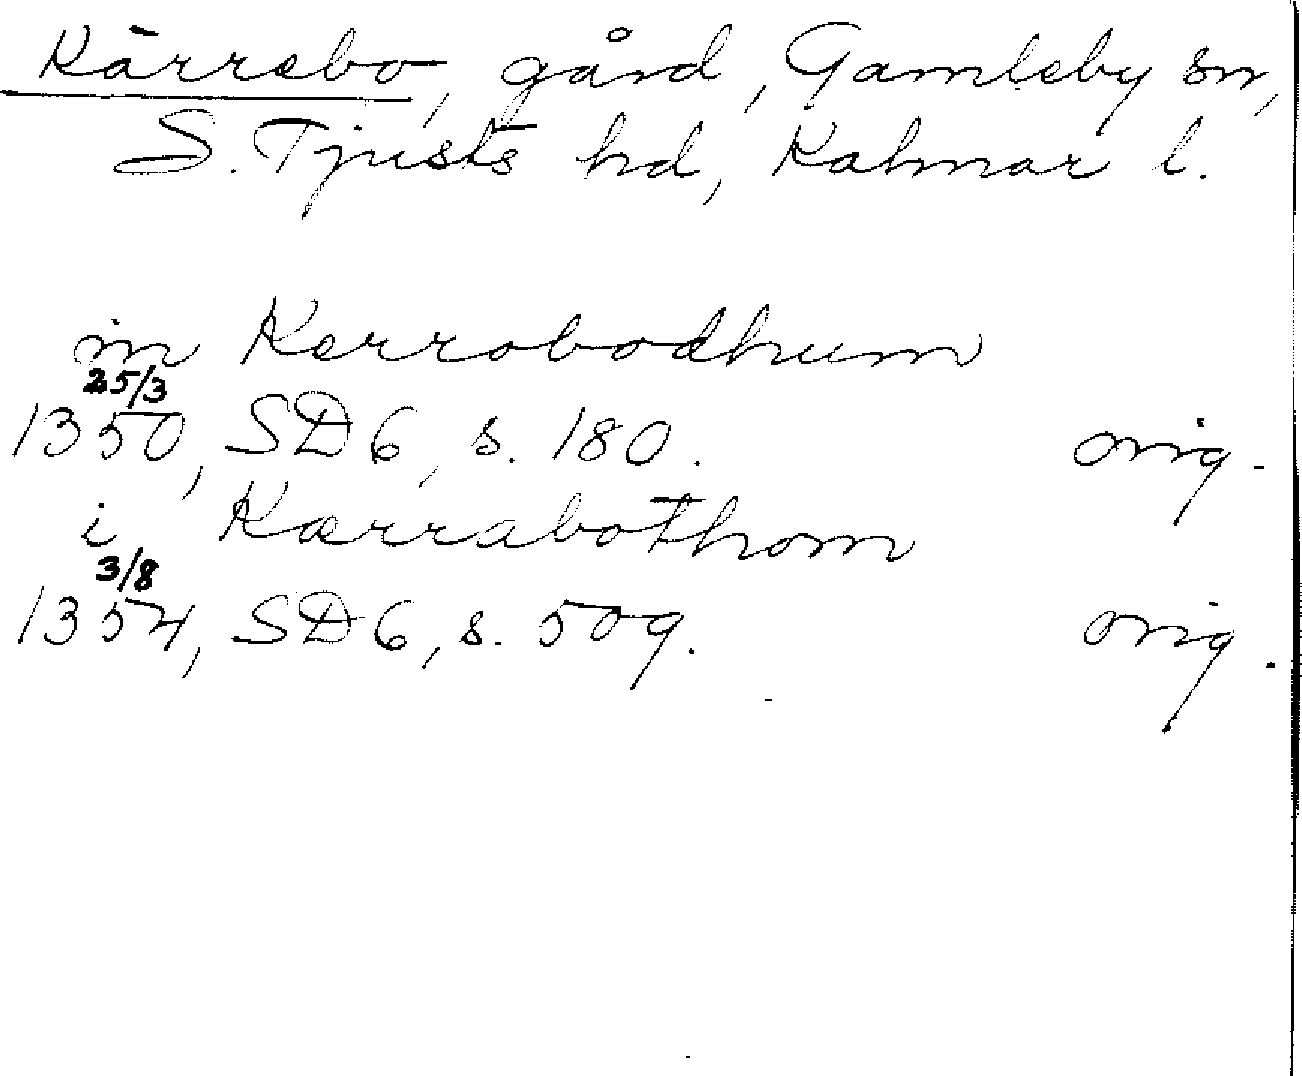 Kärrebo, gård, Gamleby sn,
S. Tjusts hd, Kalmar l.
in Kerrobodhum
25/3
1350, SD 6, s. 180. orig.
i Kærrabothom
3/8
1354, SD 6, s. 509. orig.